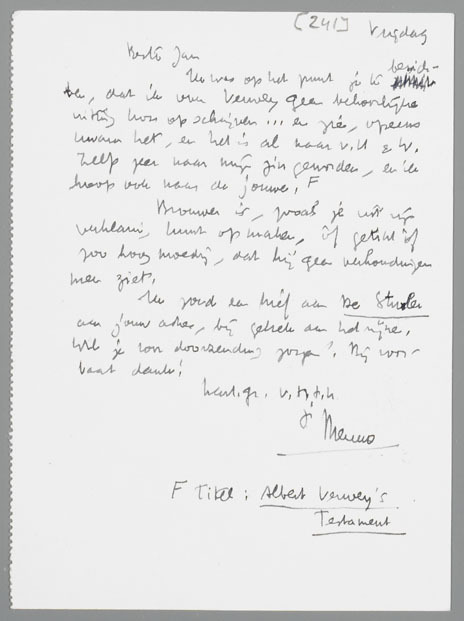 [241] Vrijdag
Beste Jan
Ik was op het punt je te berich-
ten, dat ik over Verwey geen behoorlijke
kon opschrijven... en zie, opeens
kwam het, en het is al naar V.U & W.
Zelfs zeer naar mijn zin geworden, en ik
hoop ook naar de jouwe. F
Brouwer is, zooals je uit zijn
verklaring kunt opmaken, òf getikt òf
zoo hoogmoedig, dat hij geen verhoudingen
meer ziet.
Ik zond een brief aan De
aan jouw adres, bij gebrek aan het zijne.
Wil je voor doorzending zorgen? Bij voor-
baat dank!
hart. gr. v. h. t. h.
je Menno
F Titel: Albert Verwey's
Testament